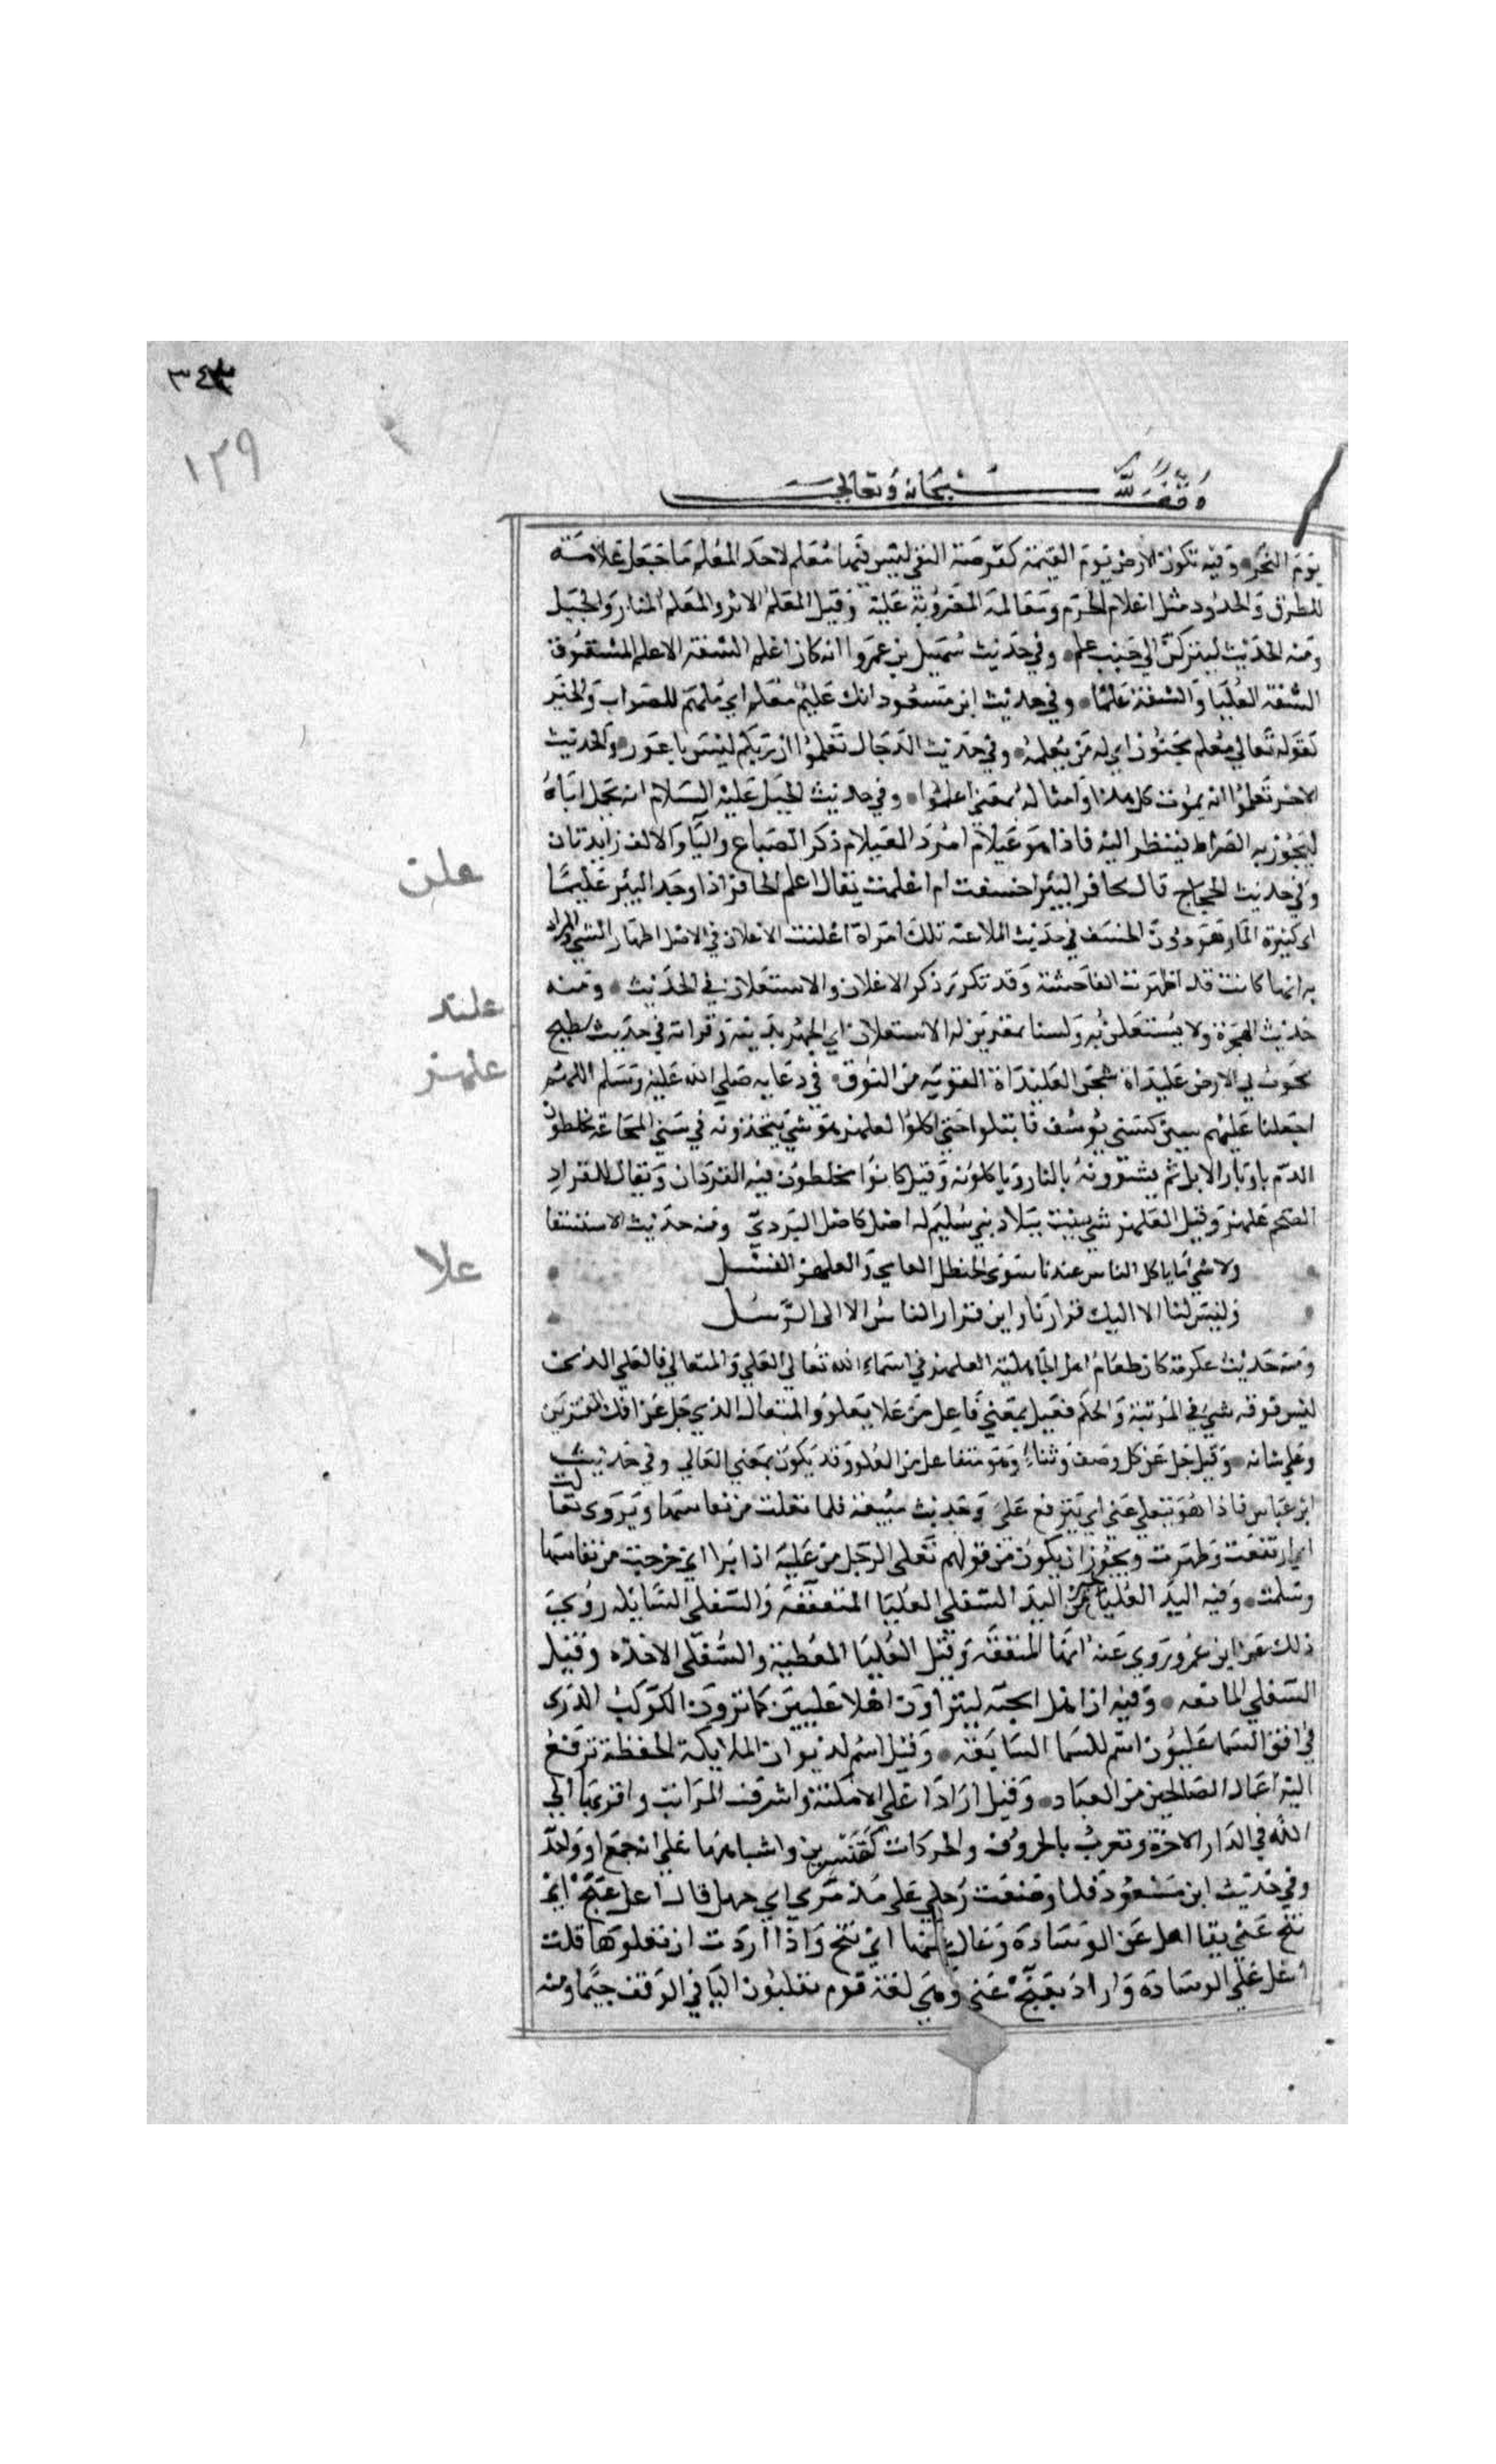 ٣٤٣
١٢٩
وقف لله سبحانه وتعالى
يوم النحر وفيه تكون الارض يوم القيمة كقرصة النقي ليس فيها معلم لاحد المعلم ما جعل علامة
للطرق والحدود مثل اعلام الحرم ومعالمه المضروبة عليه وقيل المعلم الاثر والمعلم المنار والجبل
ومنه الحديث لينزلن الي جنب علم وفي حديث سهيل بن عمروا انه كان اعلم الشفة الاعلم المشقوق
الشفة العليا والشفة علما وفي حديث ابن مسعود انك عليم معلم اي ملهم للصواب والخير
كقوله تعالي معلم مجنون اي له من يعلمه وفي حديث الدجال تعلموا ان ربكم ليس باعور والحديث
الاخر تعلموا انه يموت كل هذا وامثاله بمعني اعلموا وفي حديث الخيل عليه السلام انه يحمل اباه
ليجوز به الصراط فينظر اليه فاذا هو عيلام امرد العيلام ذكر الضباع واليا والالف زايدتان
وفي حديث الحجاج قال لحافر البير اخسفت ام اعلمت يقال اعلم الحافر اذا وجد البير عليما
علن
اي كثيرة الما وهو دون الخسف في حديث الملاعنه تلك امراة اعلنت الاعلان في الاصل اظهار الشي والمراد
به انها كانت قد اظهرت الفاحشة وقد تكرر ذكر الاعلان والاستعلان في الحديث ومنه
علند
حديث الهجرة ولا يستعلن به ولسنا بمقرين له الاستعلان اي الجهر بدينه وقراته في حديث سطيح
علهز
تجوب بي الارض علنداة شجن العلنداة القويه من النوق في دعايه صلي الله عليه وسلم اللهم
اجعلنا عليهم سنين كسني يوسف فابتلوا حتى اكلوا العلهز هو شي يتخذونه في سني المجاعة يخلطون
الدم باوبار الابل ثم يشوونه بالنار وياكلونه وقيل كانوا يخلطون فيه القردان ويقال للقراد
الضخم علهز وقيل العلهز شي ينبت ببلاد بني سليم له اصل كاصل البردي ومنه حديث الاستسقا
ولا شي مما ياكل الناس عندنا سوى الحنظل العامي والعلهز الفسل
علا
وليس لنا الا اليك فرارنا واين فرار الناس الا الى الرسل
ومنه حديث عكرمة كان طعام اهل الجاهلية العلهز في اسماء الله تعالي العلي والمتعالي فالعلي الذي
ليس فوقه شي في المرتبة والحكم فعيل بمعني فاعل من علا يعلو والمتعال الذي جل عن افك المفترين
وعلي شانه وقيل جل عن كل وصف وثناء وهو متفاعل من العلو وقد يكون بمعني العالي وفي حديث
ابن عباس فاذا هو يتعلي عني اي يترفع علي وحديث سبيعة فلما تعلت من نفاسها ويروى تعالت
اي ارتفعت وطهرت ويجوز ان يكون من قولهم تعلى الرجل من علته اذا برا اي خرجت من نفاسها
وسلمت وفيه اليد العليا خير من اليد السفلي العليا المتعففة والسفلي السايله روي
ذلك عن ابن عمر وروي عنه انها المنفقة وقيل العليا المعطية والسفلى الاخذه وقيل
السفلي المانعه وفيه ان اهل الجنه ليتراون اهل عليين كما ترون الكوكب الدرى
في افق السما عليون اسم للسما السابعة وقيل اسم لديوان الملايكة الحفظة ترفع
اليه اعمال الصالحين من العباد وقيل اراد اعلي الامكنة واشرف المراتب واقربها الي
الله في الدار الاخرة وتعرب بالحروف والحركات كقنسرين واشباهها علي انه جمع او واحد
وفي حديث ابن مسعود فلما وضعت رجلي علي مذمري ابي جهل قال اعل عنج اي
تنح عني يقال اعل عن الوسادة وعال عنها اي تنح واذا اردت ان تعلوها قلت
اعل علي الوسادة واراد بعنج عني وهي لغة قوم يقلبون اليا في الوقف جيما ومنه